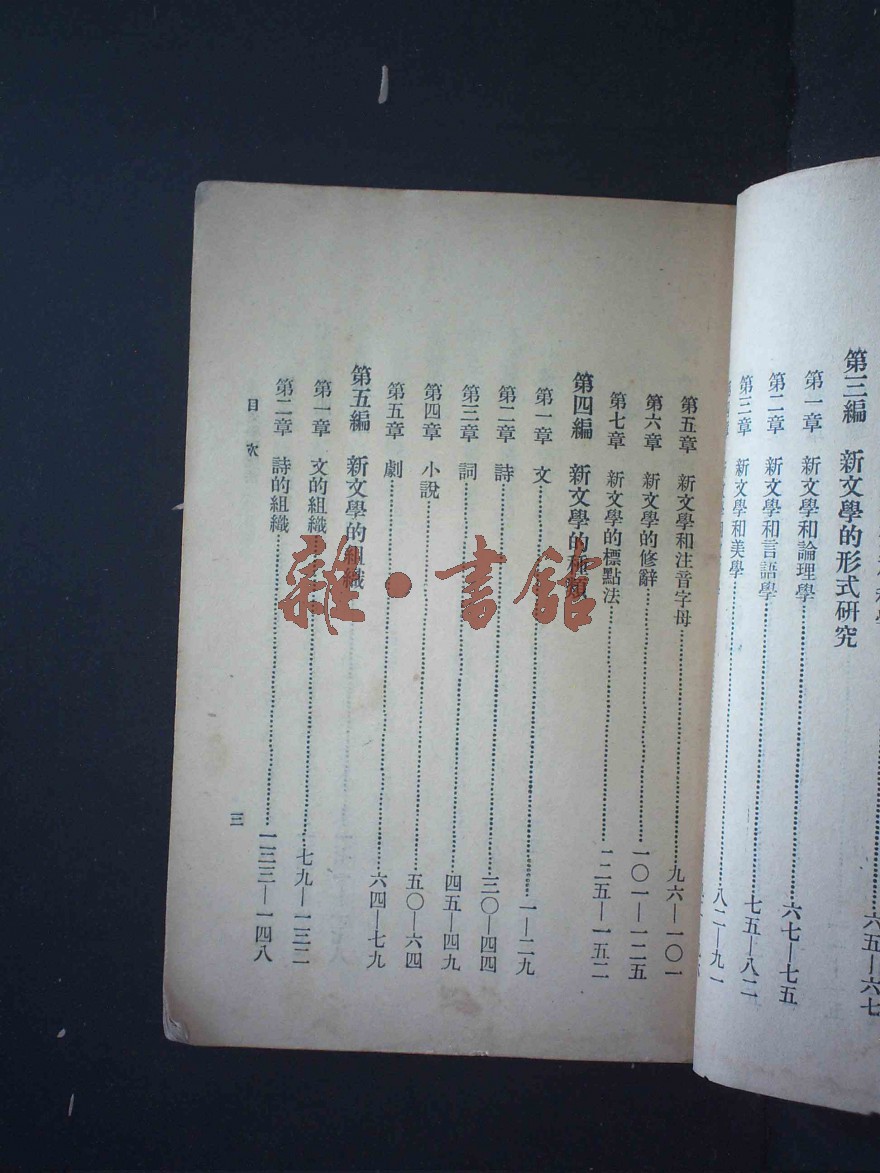 第三編　新文學的形式研究
六五—六七
第一章　新文學和論理學……六七—七五
第二章　新文學和言語學……七五—八二
第三章　新文學和美學……八二—九一
第五章　新文學和注音字母……九六—一〇一
第六章　新文學的修辭……一〇一—一二五
第七章　新文學的標點法……一二五—一五二
第四編　新文學的種類
第一章　文……一—二九
第二章　詩……三〇—四四
第三章　詞……四五—四九
第四章　小說……五〇—六四
第五章　劇……六四—七九
第五編　新文學的組織
第一章　文的組織……七九—一三二
第二章　詩的組織……一三三—一四八
目次
三
雜·書館